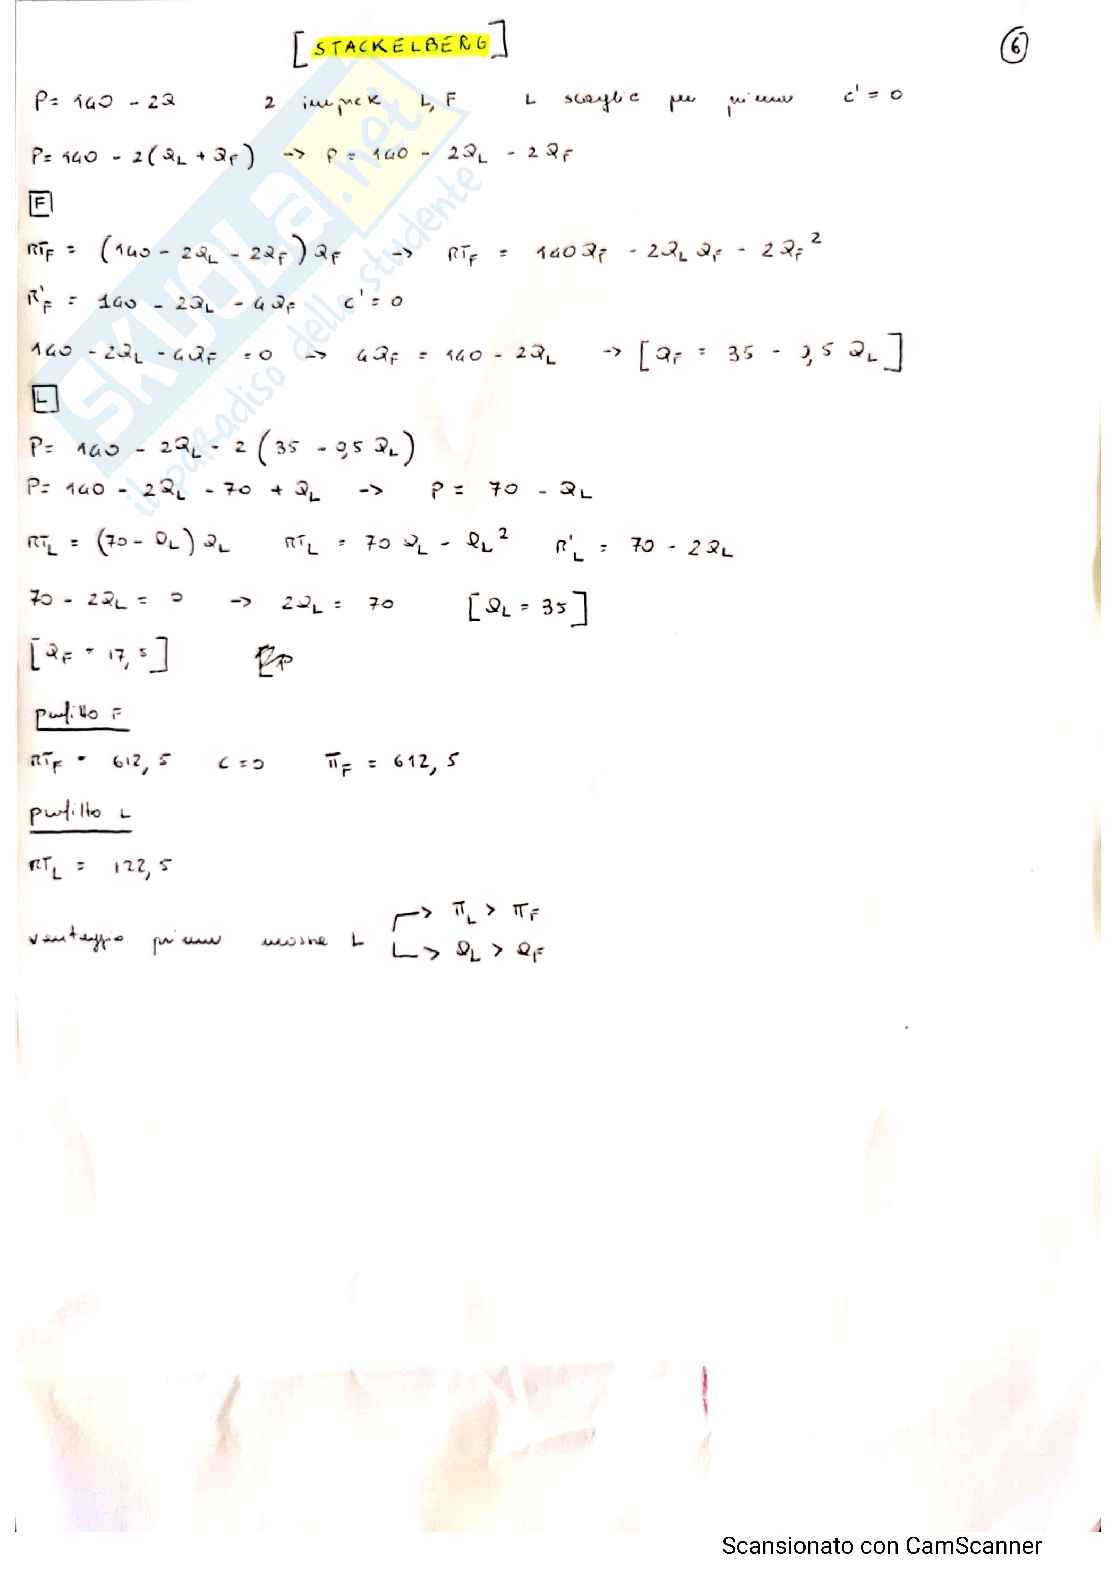 [STACKELBERG]
6
P = 140 - 2Q 2 imprese L, F L sceglie per primo c' = 0
P = 140 - 2(Q_L + Q_F) -> P = 140 - 2Q_L - 2Q_F
F
RT_F = (140 - 2Q_L - 2Q_F) Q_F -> RT_F = 140Q_F - 2Q_L Q_F - 2Q_F²
R'_F = 140 - 2Q_L - 4Q_F c' = 0
140 - 2Q_L - 4Q_F = 0 -> 4Q_F = 140 - 2Q_L -> [Q_F = 35 - 0,5 Q_L]
L
P = 140 - 2Q_L - 2(35 - 0,5 Q_L)
P = 140 - 2Q_L - 70 + Q_L -> P = 70 - Q_L
RT_L = (70 - Q_L) Q_L RT_L = 70 Q_L - Q_L² R'_L = 70 - 2Q_L
70 - 2Q_L = 0 -> 2Q_L = 70 [Q_L = 35]
[Q_F = 17,5]
profitto F
RT_F = 612,5 c = 0 π_F = 612,5
profitto L
RT_L = 122,5
vantaggio prima mossa L -> π_L > π_F
-> Q_L > Q_F
SKUOLA.net
il paradiso dello studente
Scansionato con CamScanner